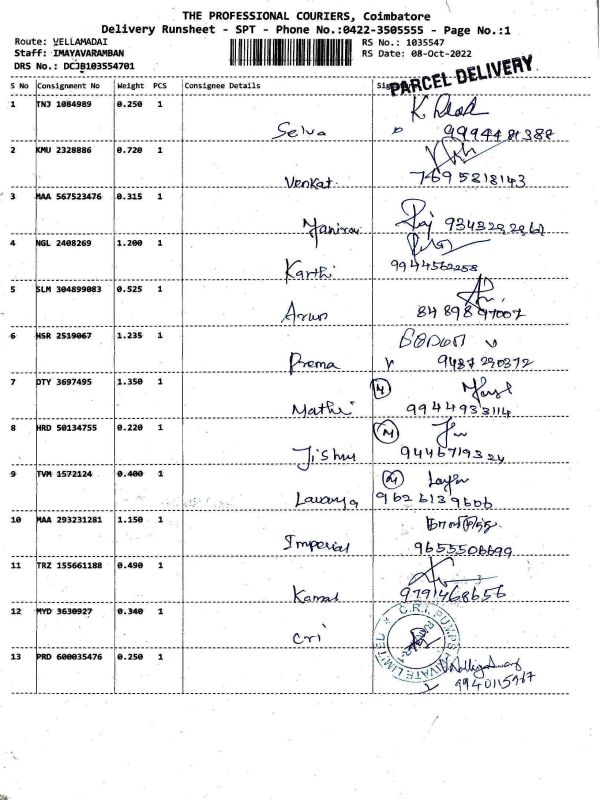 THE PROFESSIONAL COURIERS, Coimbatore
Delivery Runsheet - SPT - Phone No.:0422-3505555 - Page No.:1
Route: VELLAMADAI
RS No.: 1035547
Staff: IMAYAVARAMBAN
RS Date: 08-Oct-2022
DRS No.: DCJB103554701
PARCEL DELIVERY
S No Consignment No Weight PCS Consignee Details
1 TNJ 1084989 0.250 1
Selva 9994481388
2 KMU 2328886 0.720 1
Venkat 7695818143
3 MAA 567523476 0.315 1
Raj
4 NGL 2408269 1.200 1
Karthi 9944562258
5 SLM 304899083 0.525 1
Arun 8489897007
6 HSR 2519067 1.235 1
Prema 9487290372
7 DTY 3697495 1.350 1
M
Mathi 9944933114
8 HRD 50134755 0.220 1
M
Jishnu 9446719324
9 TVM 1572124 0.400 1
M
Lavanya 9626139606
10 MAA 293231281 1.150 1
Imperial 9655506699
11 TRZ 155661188 0.490 1
Kamal 9791468656
12 MYD 3630927 0.340 1
Cri
C.R.I. PUMPS PRIVATE LIMITED
13 PRD 600035476 0.250 1
9940115967